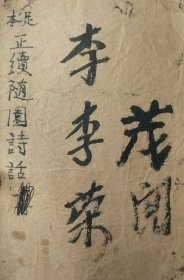 茂
李李荣
足本正續隨園詩話